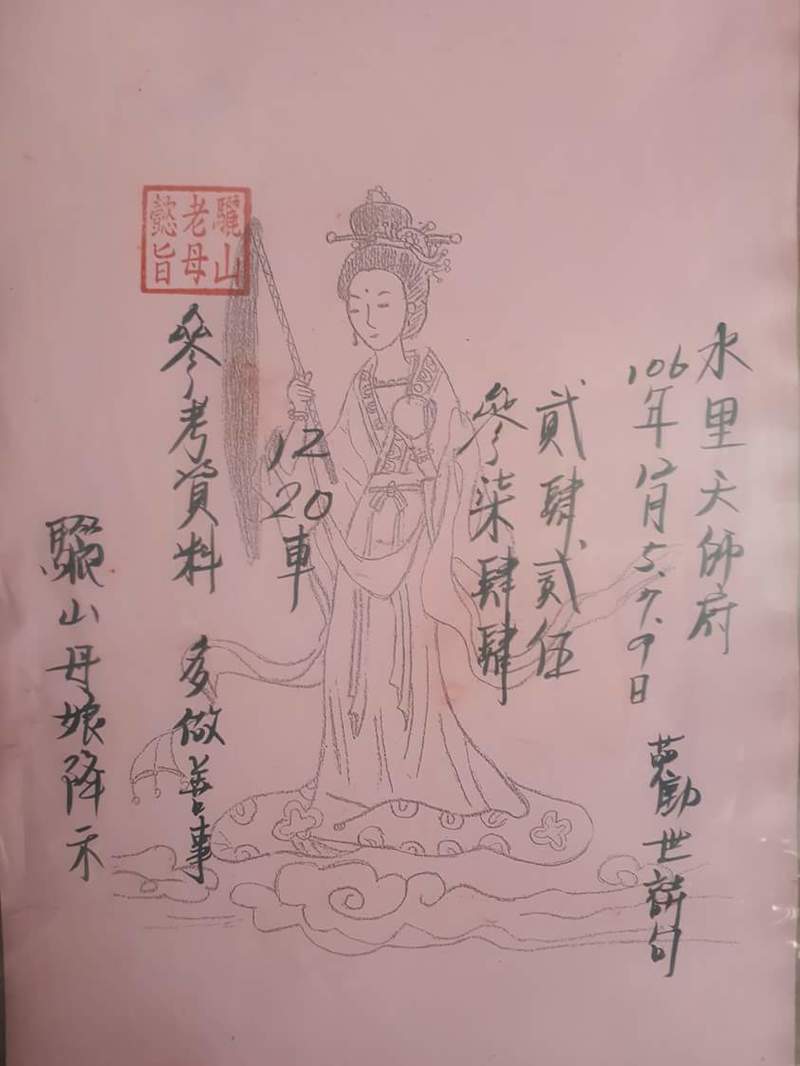 水里天師府
106年12月5.7.9日
勸世詩句
貳肆貳伍
參柒肆肆
12
20車
驪山
老母
懿旨
參考資料 多做善事
驪山母娘降示